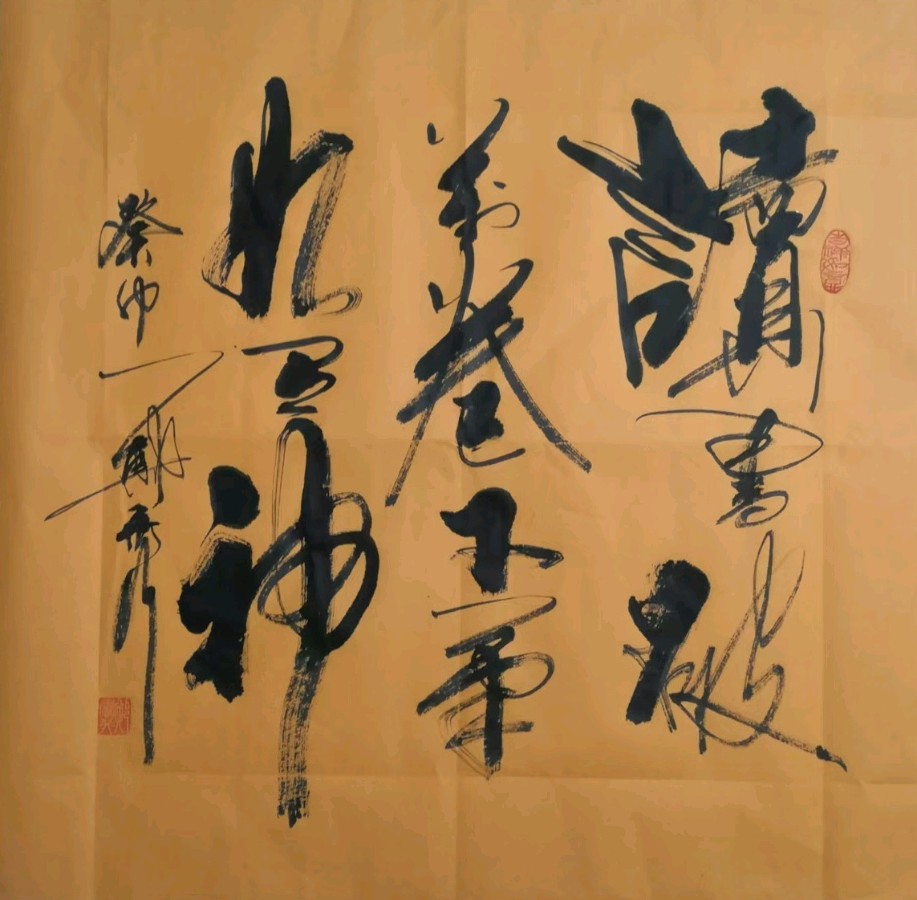 讀書破
萬卷下筆
如有神
癸卯